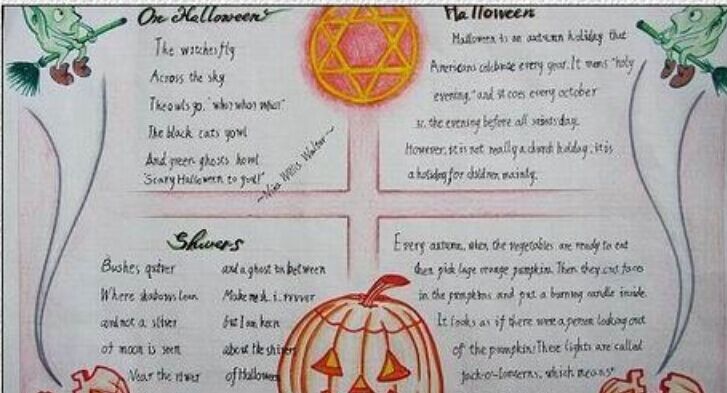 On Halloween
The witches fly
Across the sky
The owls go, "who? who? who?"
The black cats yowl
And green ghosts howl
"Scary Halloween to you!"
~Nina Willis Walter~
Halloween
Halloween is an autumn holiday that
Americans celebrate every year. It means "holy
evening," and it comes every october
31, the evening before all saints day.
However, it is not really a church holiday, it is
a holiday for children mainly.
Shivers
Bushes quiver
Where shadows lean
and not a sliver
of moon is seen
Near the river
and a ghost in between
Make me sh.i..rvver
but I am keen
about the shivers
of Halloween
Every autumn, when the vegetables are ready to eat
then pick large orange pumpkin. Then they cut faces
in the pumpkins and put a burning candle inside.
It looks as if there were a person looking out
of the pumpkin! These lights are called
jack-o'-lanterns, which means"